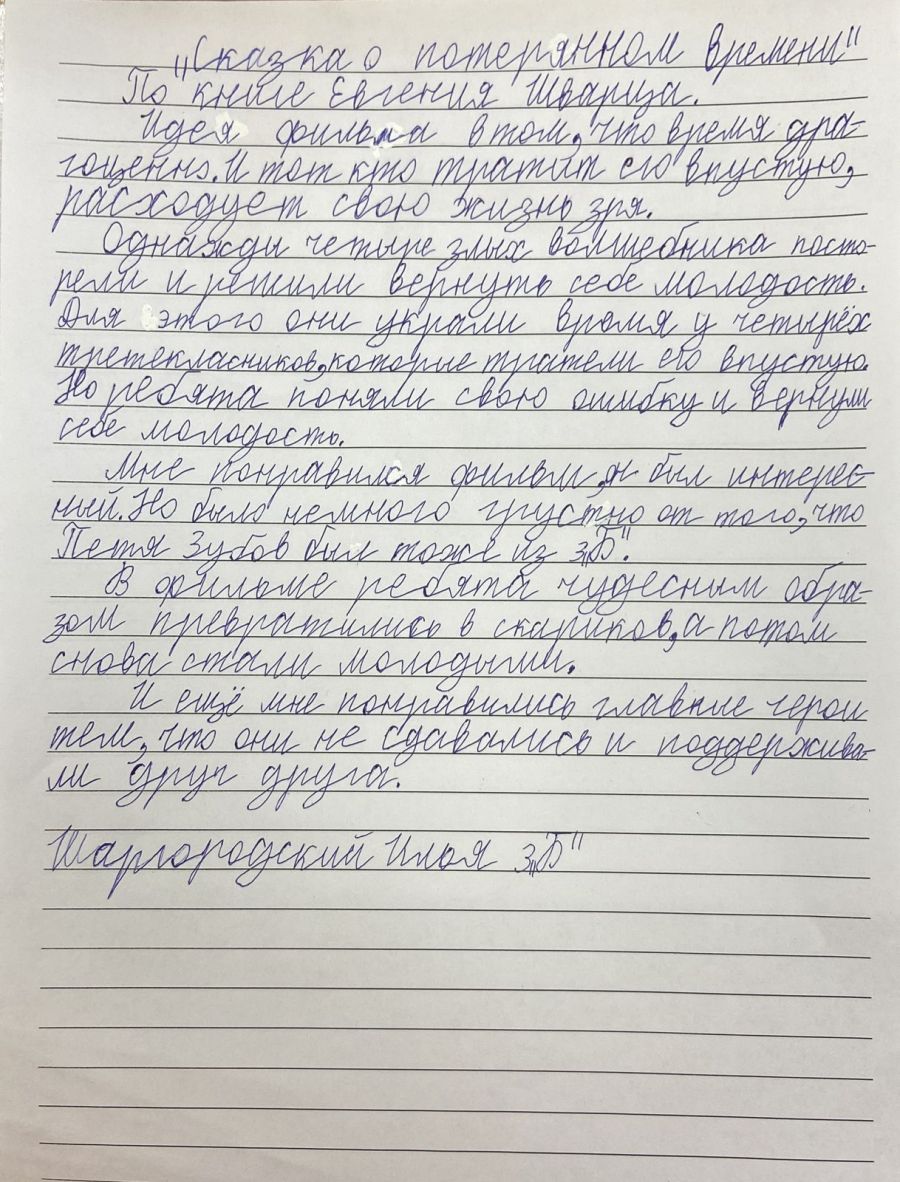 „Сказка о потерянном времени"
По книге Евгения Шварца.
Идея фильма в том, что время дра-
гоценно. И тот кто тратит его впустую,
расходует свою жизнь зря.
Однажды четыре злых волшебника посто-
рели и решили вернуть себе молодость.
Для этого они украли время у четырёх
третекласников, которые тратели его впустую.
Но ребята поняли свою ошибку и вернули
себе молодость.
Мне понравился фильм, он был интерес-
ный. Но было немного грустно от того, что
Петя Зубов был тоже из 3„Б".
В фильме ребята чудесным обра-
зом превратились в скариков, а потом
снова стали молодыми.
И ещё мне понравились главные герои
тем, что они не сдавались и поддержива-
ли друг друга.
Шаргородский Илья 3„Б"